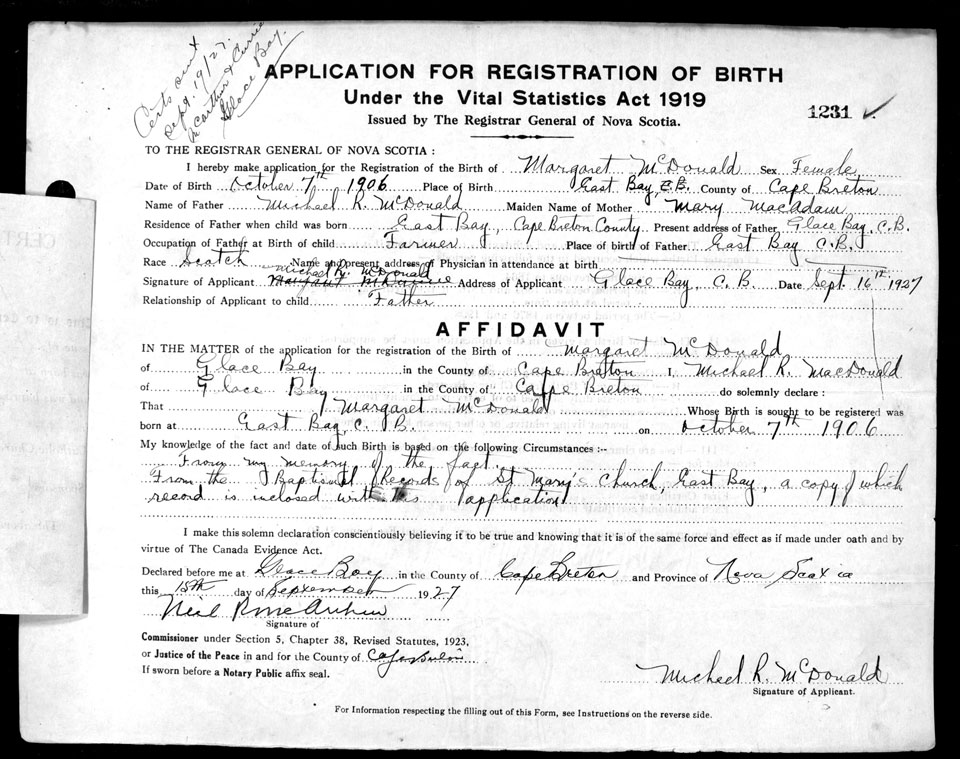 Certs out
Sept. 19/27.
McArthur & Currie
Glace Bay.
APPLICATION FOR REGISTRATION OF BIRTH
Under the Vital Statistics Act 1919
Issued by The Registrar General of Nova Scotia.
1231
TO THE REGISTRAR GENERAL OF NOVA SCOTIA :
I hereby make application for the Registration of the Birth of Margaret McDonald Sex Female
Date of Birth October 7th 1906 Place of Birth East Bay, C.B. County of Cape Breton
Name of Father Michael R. McDonald Maiden Name of Mother Mary MacAdam
Residence of Father when child was born East Bay, Cape Breton County. Present address of Father Glace Bay, C.B.
Occupation of Father at Birth of child Farmer Place of birth of Father East Bay C.B.
Race Scotch Name and present address of Physician in attendance at birth
Signature of Applicant Michael R. McDonald Address of Applicant Glace Bay, C.B. Date Sept. 16th 1927
Relationship of Applicant to child Father
AFFIDAVIT
IN THE MATTER of the application for the registration of the Birth of Margaret McDonald
of Glace Bay in the County of Cape Breton I, Michael R. MacDonald
of Glace Bay in the County of Cape Breton do solemnly declare :
That Margaret McDonald Whose Birth is sought to be registered was
born at East Bay, C. B. on October 7th 1906
My knowledge of the fact and date of such Birth is based on the following Circumstances :--
From my memory of the fact.
From the Baptismal Records of St Mary's Church, East Bay, a copy of which
record is inclosed with this application
I make this solemn declaration conscientiously believing it to be true and knowing that it is of the same force and effect as if made under oath and by
virtue of The Canada Evidence Act.
Declared before me at Glace Bay in the County of Cape Breton and Province of Nova Scotia
this 15th day of September 1927
Neil R McArthur
Signature of
Commissioner under Section 5, Chapter 38, Revised Statutes, 1923,
or Justice of the Peace in and for the County of Cape Breton
If sworn before a Notary Public affix seal.
Michael R. McDonald
Signature of Applicant.
For Information respecting the filling out of this Form, see Instructions on the reverse side.